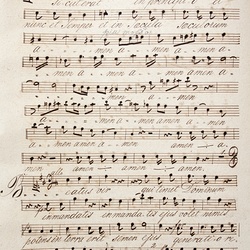 Sicut erat in principio et
nunc et semper et in saecula saeculorum
a - - men a - - men a - - men a -
men a - - men a - - men amen a -
men a - - men
a - - men a - - men a - - men a -
men amen amen a - - men amen
men amen amen amen
Beatus vir qui timet Dominum
in mandatis in mandatis ejus volet nimis
potens in terra erit semen ejus generatio